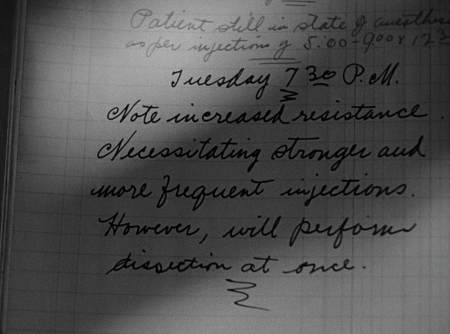 Patient still in state of anesthes
as per injections of 5:00-9:00 & 12 3
Tuesday 7 30 P.M.
Note increased resistance.
Necessitating stronger and
more frequent injections.
However, will perform
dissection at once.